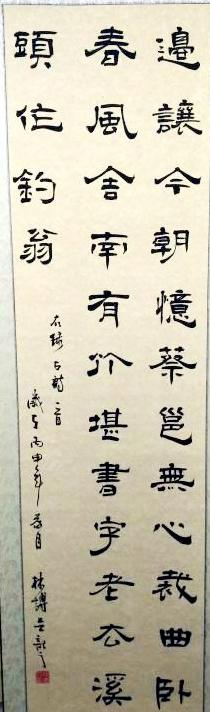 邊讓今朝憶蔡邕無心裁曲卧
春風舍南有竹堪書字老去溪
頭作釣翁
右錄古詩一首
歲在丙申年